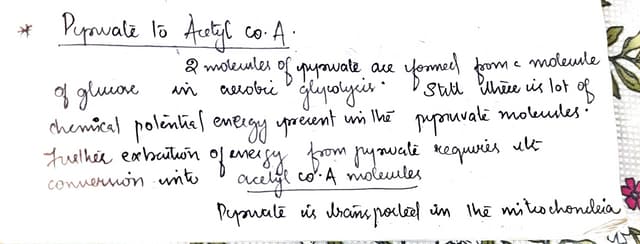 * Pyruvate to Acetyl co.A.
2 molecules of pyruvate are formed from a molecule
of glucose in aerobic glycolysis. Still there is lot of
chemical potential energy present in the pyruvate molecules.
Further extraction of energy from pyruvate requires its
conversion into acetyl co.A molecules
Pyruvate is transported in the mitochondria